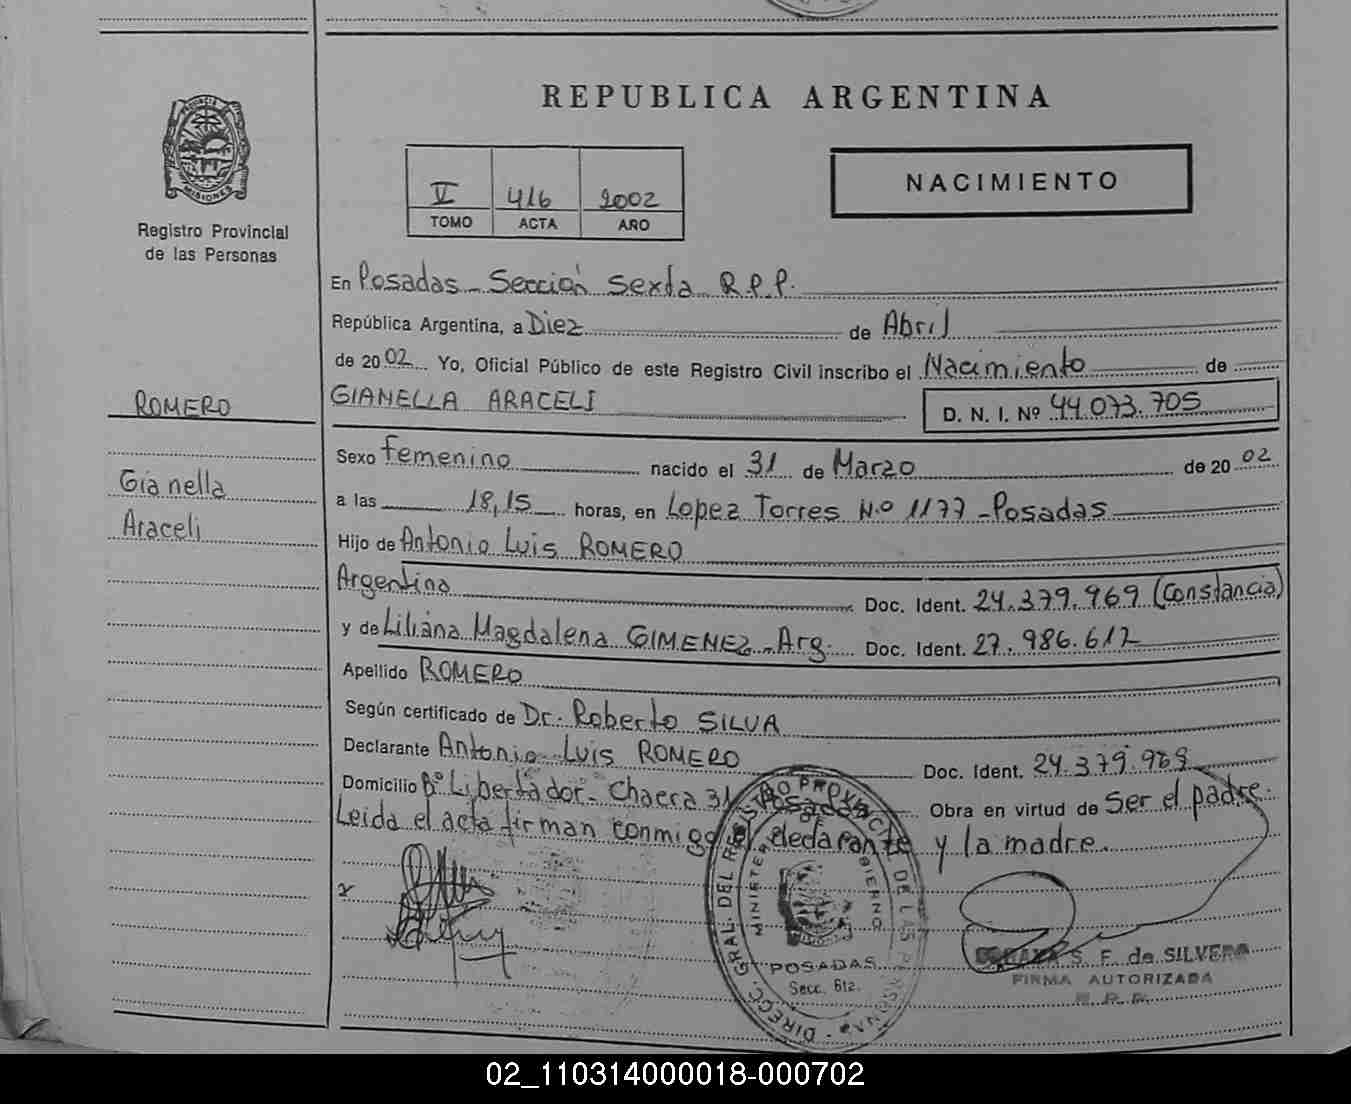 REPUBLICA ARGENTINA
PROVINCIA DE
MISIONES
Registro Provincial
de las Personas
V 416 2002
TOMO ACTA AÑO
NACIMIENTO
En Posadas - Sección Sexta R.P.P.
República Argentina, a Diez de Abril
de 2002 Yo, Oficial Público de este Registro Civil inscribo el Nacimiento de
ROMERO
GIANELLA ARACELI D. N. I. Nº 44.073.705
Gianella
Araceli
Sexo femenino nacido el 31 de Marzo de 2002
a las 18,15 horas, en Lopez Torres N.o 1177 - Posadas
Hijo de Antonio Luis ROMERO
Argentino Doc. Ident. 24.379.969 (Constancia)
y de Liliana Magdalena GIMENEZ - Arg. Doc. Ident. 27.986.612
Apellido ROMERO
Según certificado de Dr. Roberto SILVA
Declarante Antonio Luis ROMERO Doc. Ident. 24.379.969
Domicilio Bº Libertador - Chacra 31 Posadas Obra en virtud de Ser el padre.
Leida el acta firman conmigo el declarante y la madre.
x
DIRECC. GRAL. DEL REGISTRO PROVINCIAL DE LAS PERSONAS
MINISTERIO DE GOBIERNO
POSADAS
Secc. 6ta.
S. F. de SILVERA
FIRMA AUTORIZADA
R. P. P.
02_110314000018-000702